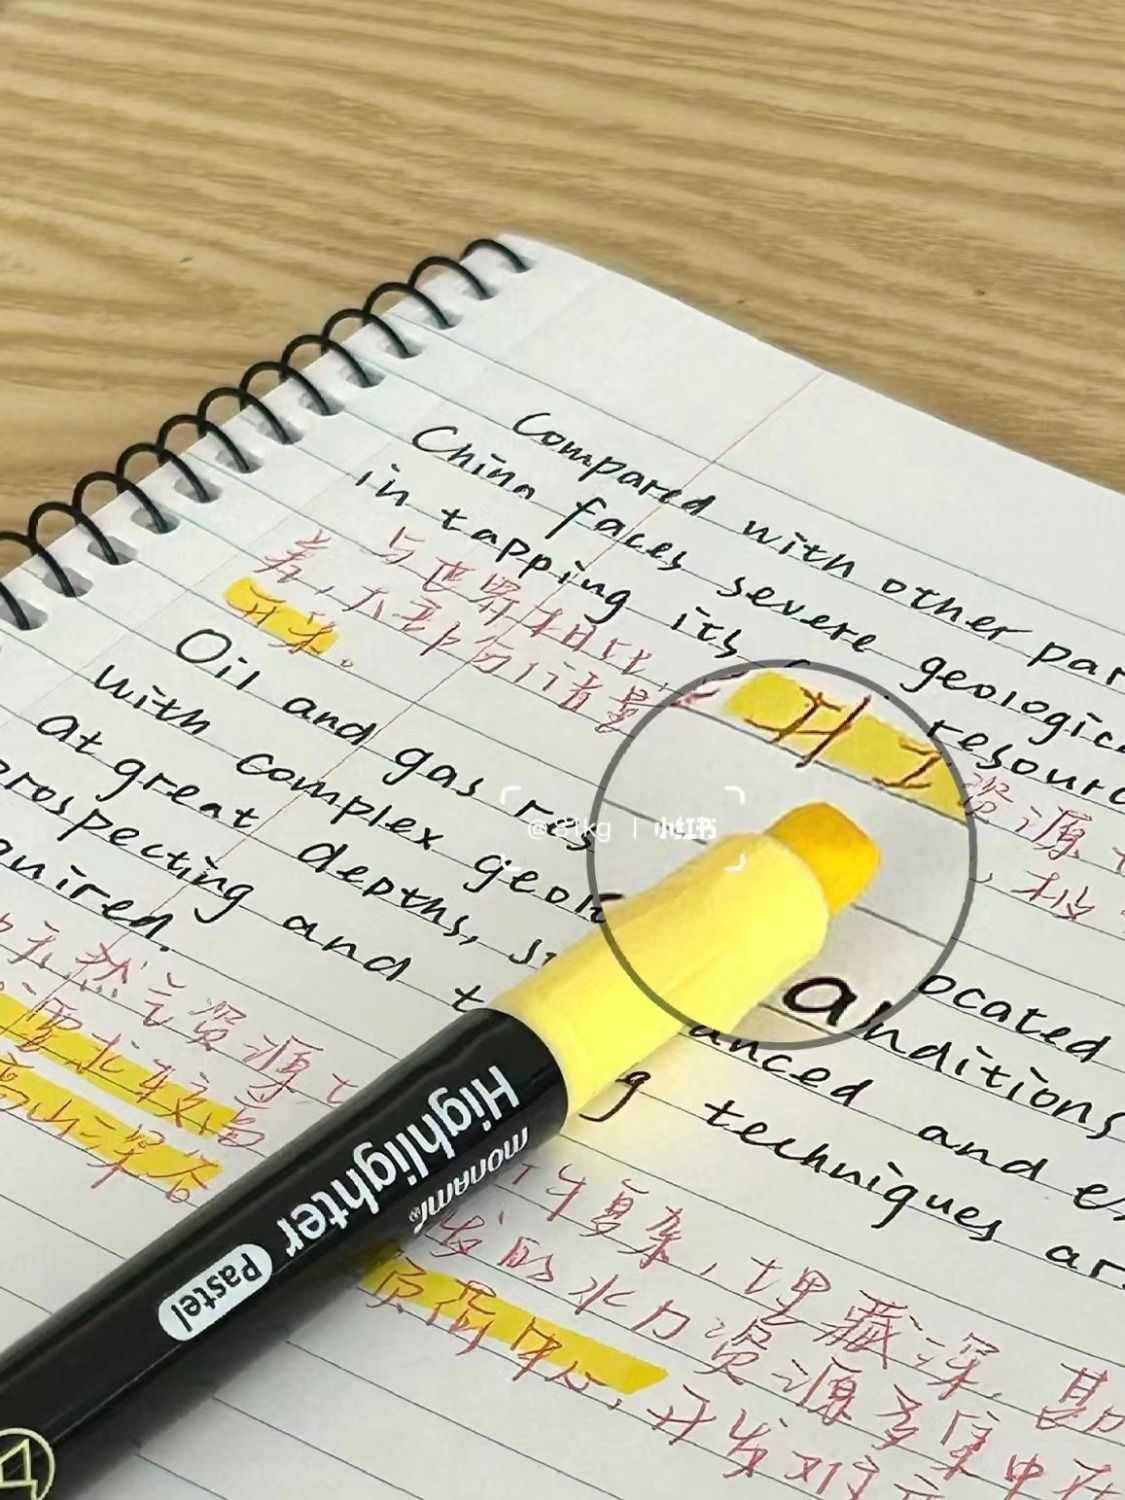 Compared with other par
China faces severe geologic
in tapping its resourc
与世界相比, 资源
差,大部分 井工
开采。
Oil and gas res ocated
with complex geolo nditions
at great depths, s anced and e
prospecting and t g techniques ar
quired.
天然气资源 件复杂,埋藏深,勘
要求较高 发的水力资源多集中在
高山深谷 负荷中心,开发对
a
monami
Highlighter
Pastel
@81kg | 小红书